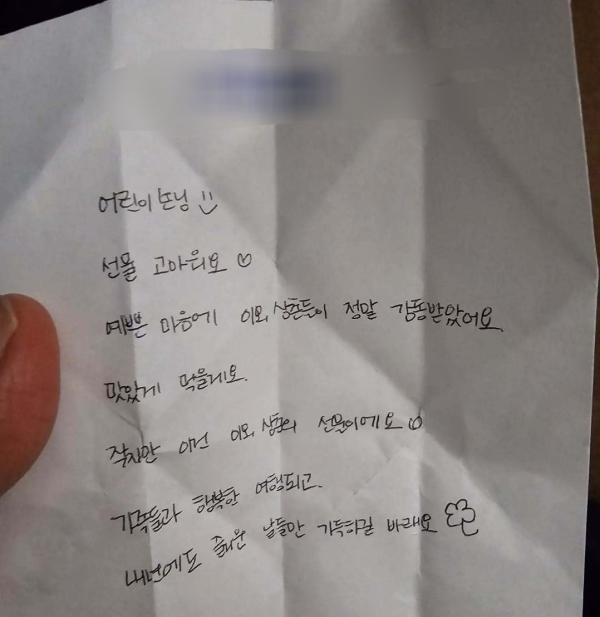 어린이 손님
선물 고마워요
예쁜 마음에 이모, 삼촌들이 정말 감동받았어요
맛있게 먹을게요.
작지만 이건 이모, 삼촌의 선물이에요
가족들과 행복한 여행되고.
내년에도 즐거운 날들만 가득하길 바래요